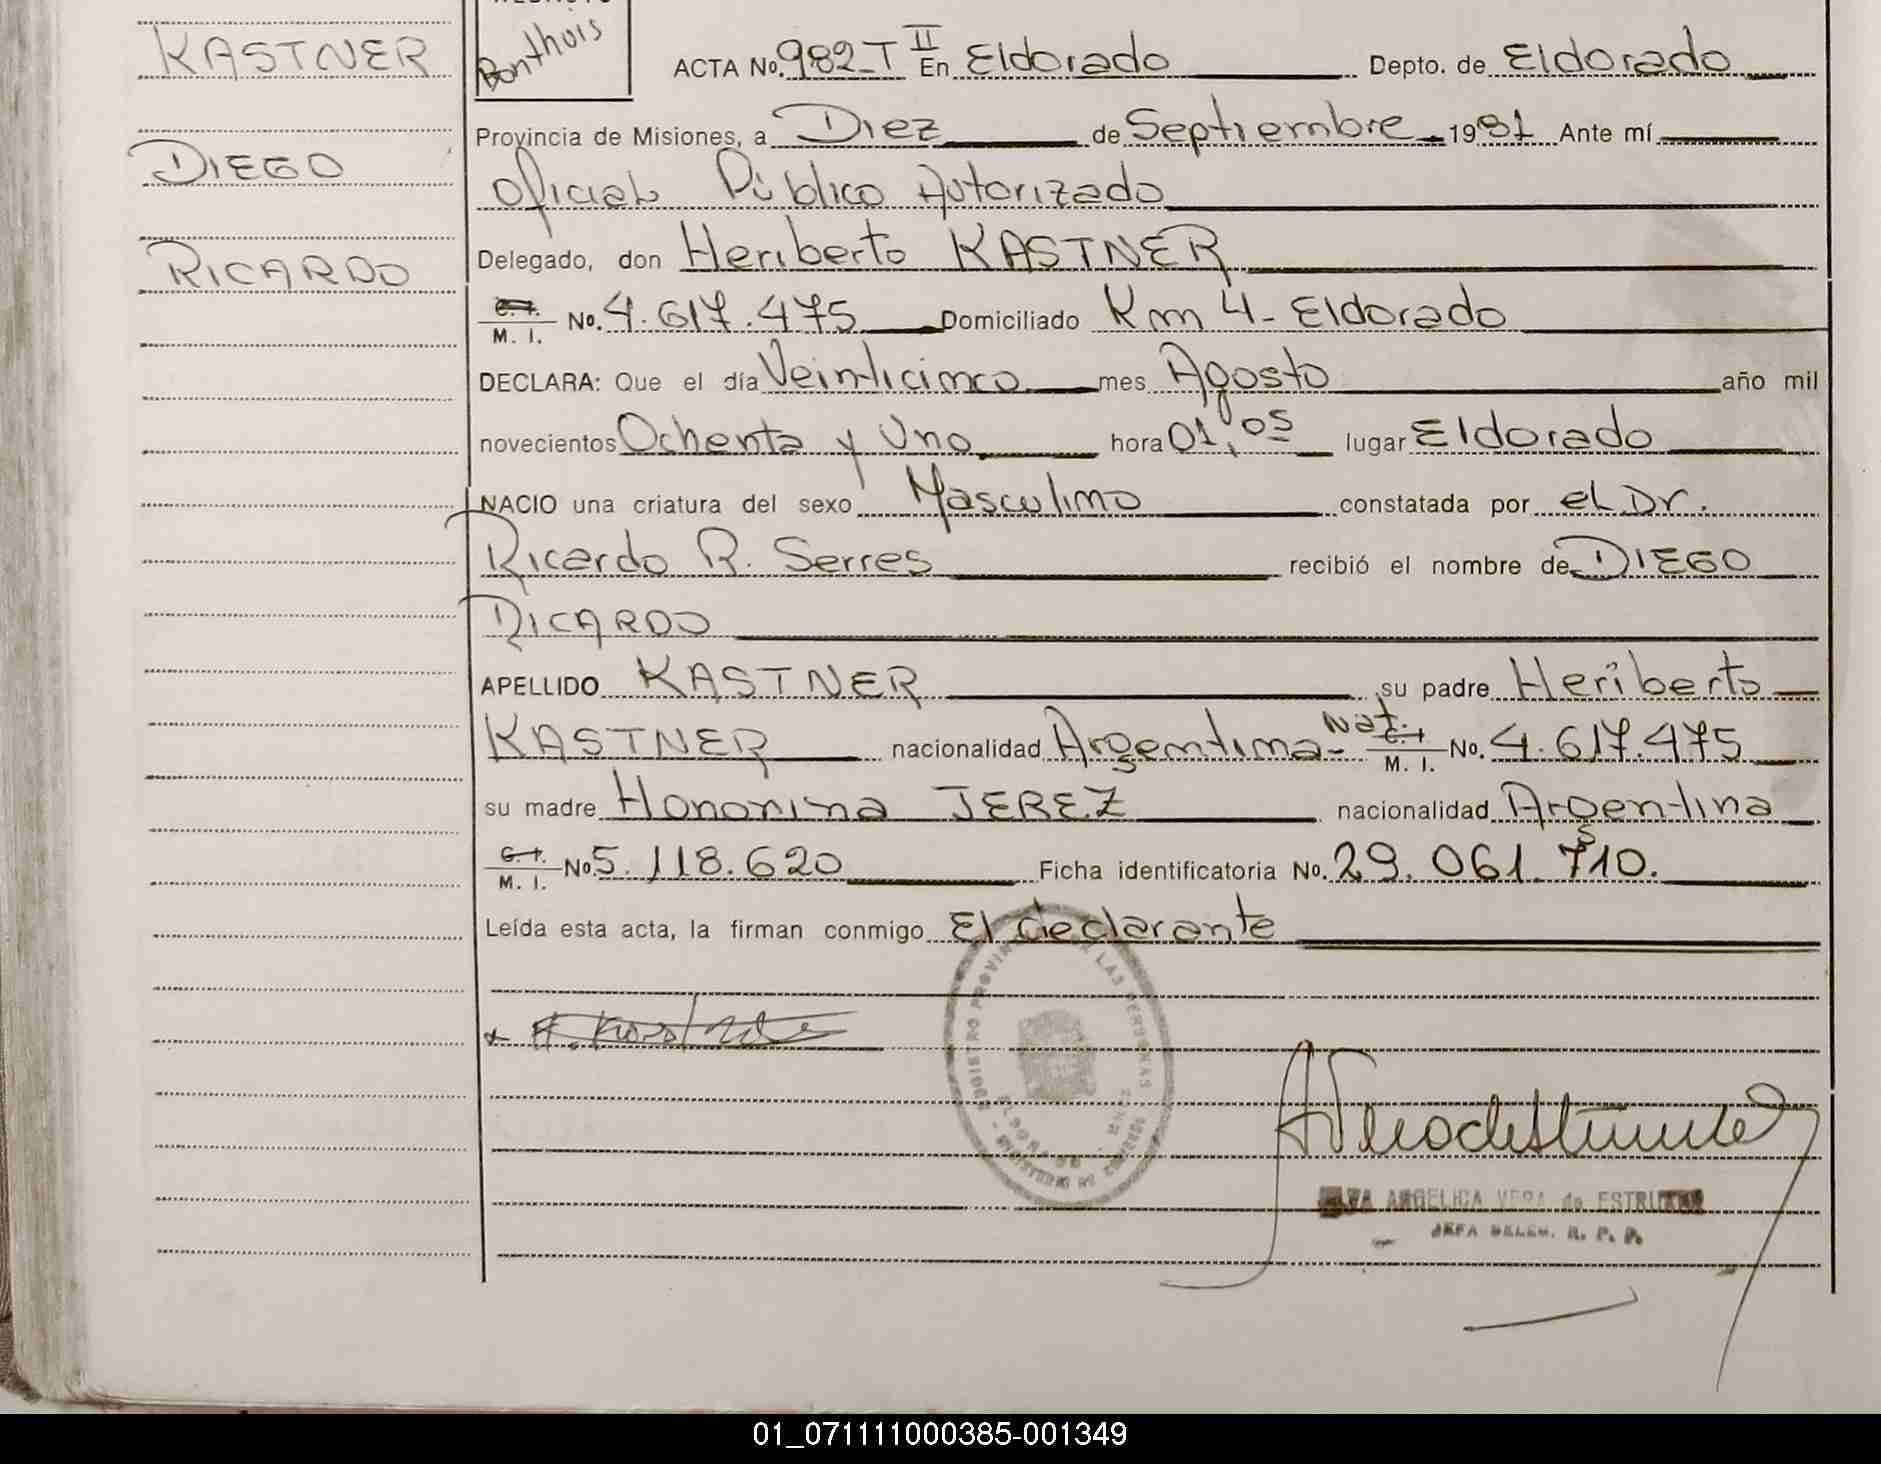 KASTNER
DIEGO
RICARDO
Bonthuis
ACTA No. 982-T II En Eldorado Depto. de Eldorado
Provincia de Misiones, a Diez de Septiembre 1981 Ante mí
Oficial Público Autorizado
Delegado, don Heriberto KASTNER
C. I.
M. I. No. 4.617.475 Domiciliado Km 4- Eldorado
DECLARA: Que el día Veinticinco mes Agosto año mil
novecientos Ochenta y Uno hora 01,05 lugar Eldorado
NACIO una criatura del sexo Masculino constatada por el Dr.
Ricardo R. Serres recibió el nombre de DIEGO
RICARDO
APELLIDO KASTNER su padre Heriberto
KASTNER nacionalidad Argentina- Nat. C. I. M. I. No. 4.617.475
su madre Honorina JEREZ nacionalidad Argentina
C. I.
M. I. No 5.118.620 Ficha identificatoria No. 29.061.710.
Leída esta acta, la firman conmigo El declarante
REGISTRO PROVINCIAL DE LAS PERSONAS
ELDORADO
ANGELICA VERA de
JEFA DELEG. R. P. P.
01_071111000385-001349